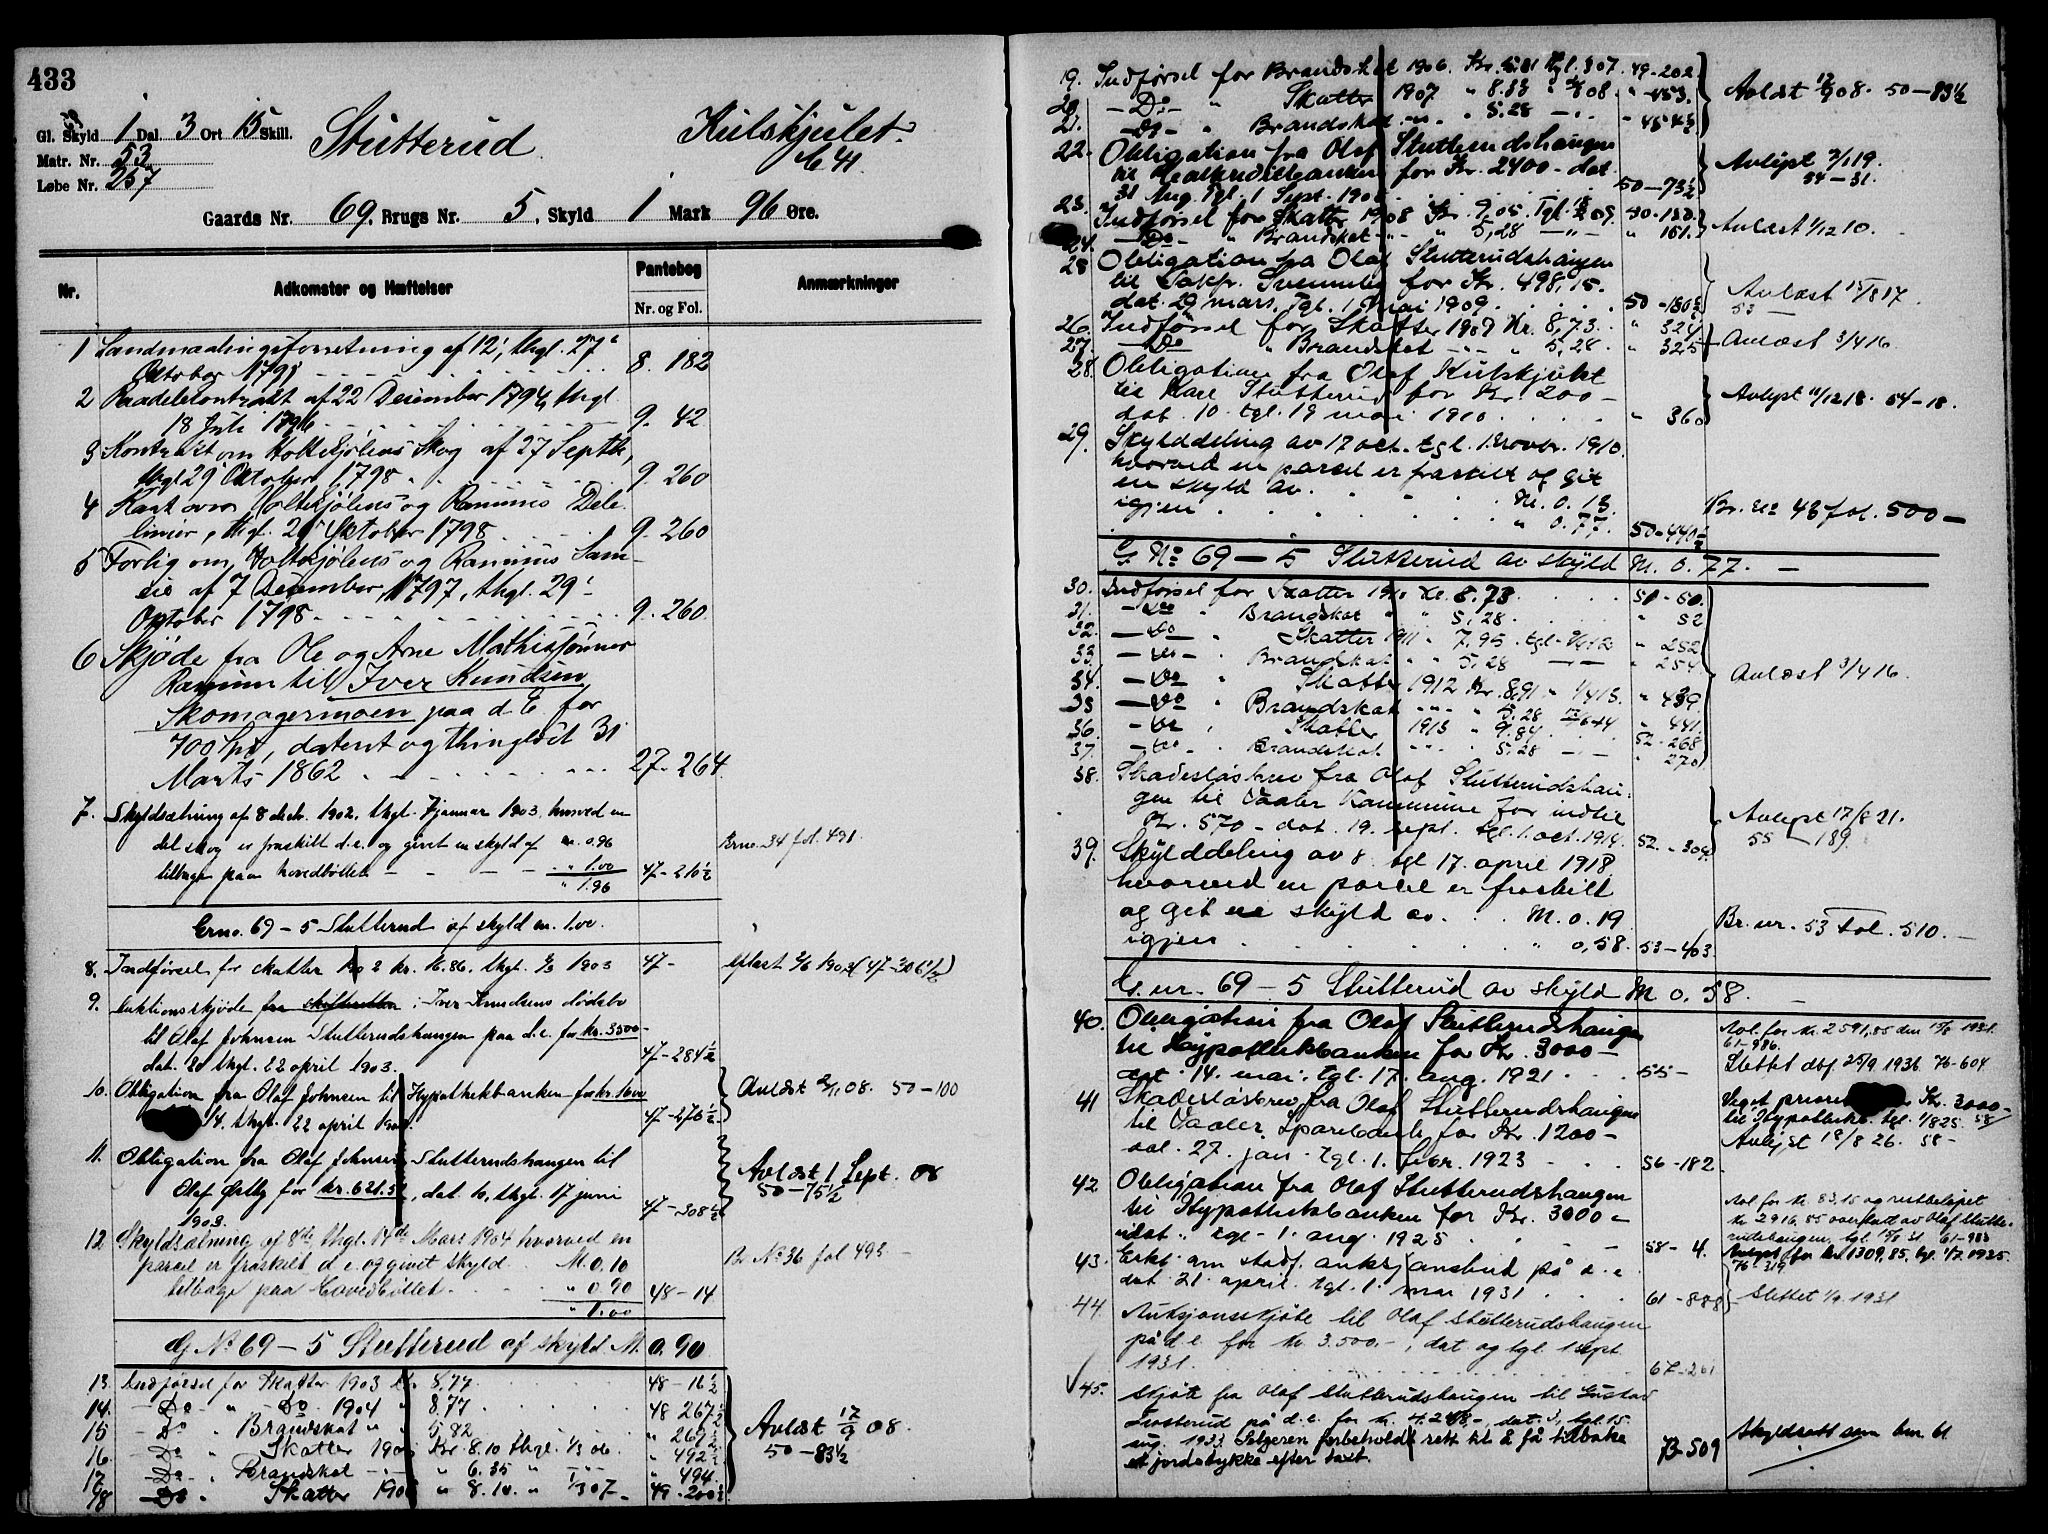 433
Gl. Skyld 1 Dal 3 Ort 15 Skill.
Matr. Nr. 53
Løbe Nr. 257
Stutterud
Kulskjulet
Gaards Nr. 69, Brugs Nr. 5, Skyld 1 Mark 96 Øre.
Nr.
Adkomster og Hæftelser
Pantebog
Nr. og Fol.
Anmærkninger
1 Landmaalingsforretning af 12', thgl. 27'
Oktober 8. 182
2 af 22 Desember 1794, thgl.
18 Juli 1796 9. 42
3 Kontrakt om Skog af 27 Septbr,
thgl 29' Oktober 1798 9 260
4
linier, thgl. Oktober 1798 9. 260
5 Forlig om og Ramuns Sam-
eie af 7 Desember 1797, thgl. 29'
Oktober 1798 9. 260
6 Skjøde fra Ole og Arne Mathissønner
Ramum til Iver Knudsen
Skomagermoen paa d. E. for
700 Spd, dateret og thinglæst 31
Marts 1862 27-264
7. Skyldsætning af 8 decb. 1902, thgl. 7 januar 1903, hvorved en
del skog er fraskilt d.e. og givet en skyld af m. 0.96
tilbage paa hovedbøllet " 1.00
" 1.96 47-210½
Brno. 34 fol. 491.
Grno. 69-5 Stutterud af skyld m. 1.00.
8. Indførsel for skatter 1902 kr. 16.86, thgl. 1903 47-
aflæst 1903 (47-306½)
9. Auktionsskjøde fra i Iver Knudsens dødsbo
til Olaf Johnsen Stutterudshaugen paa d.e. for kr. 3500-
dat. 20 thgl. 22 april 1903. 47-284½
10. Obligation fra Olaf Johnsen til Hypothekbanken for kr. 1600
14. thgl. 22 april 47-276½
Avlæst 08. 50-100
11. Obligation fra Olaf Johnsen Stutterudshaugen til
Olaf for kr. 621.52, dat. 10, thgl. 17 juni
1903. 47-308½
Avlæst 1 Sept. 08
50-75½
12 Skyldsætning af 8de thgl. 14de Mars 1904 hvorved en
parcel er fraskilt d.e. og givet skyld M. 0.10
tilbage paa Hovedbøllet " 0.90 48-14
" 1.00
Br No 36 fol 493-
G No 69-5 Stutterud af skyld M. 0.90
13. Indførsel for Skatter 1903 Kr. 8,77. 48-16½
14. -Do- " -Do- 1904 " 8,77 48 267½
15 -Do " Brandskat " " 5,82 " 269½
16. -Do " Skatter Kr. 8.10 thgl. 1/3 06. " 492½
17 -Do- " Brandskat -"- " 6.35 " " 494.
18 -Do " Skatter " 8.10. " 1/3 07- 49-200½
Avlæst 17/9 08.
50-83½
19. Indførsel for Brandskat 1906. Kr. tgl. 307. 49-202
20. -Do- " Skatter 1907 " 8.83 08. " 453.
21. -Do- " Brandskat " 5.28 " 454½
Avlæst 17/9 08. 50-83½
22. Obligation fra Olaf Stutterudshaugen
til Realkreditbanken for Kr. 2400- dat.
31 Aug. tgl. 1 Sept. 50-73½
Avlyst 119.
54-31.
23. Indførsel for Skatter 1908 Kr. 9,05. Tgl. 09. 50-150.
24. -Do- " Brandskat -"- " 5,28 -"- " 151.
Avlæst 1/12 10.
25 Obligation fra Olaf Stutterudshaugen
til Sakfr. for Kr. 498.15.
dat. 29 mars. tgl. 1 mai 1909. 50-180½
Avlæst 15/8 17.
53 -
26. Indførsel for Skatter 1909 Kr. 8,73. " 324
27. -Do " Brandskat -"- " 5,28. " 325
Avlæst 3/4 16.
28. Obligation fra Olaf Kulskjulet
til Karl Stutterud for Kr. 200-
dat. 10. tgl. 19 mai 1910 " 360
Avlyst 11/12 18. 54-18.
29. Skylddeling av 17 oct. tgl. 1. novbr. 1910.
hvorved en parcel er fraskilt og git
en skyld av. M. 0.13.
igjen " 0.77. 50-440½
Br. No 43 fol. 500-
G. No 69-5 Stutterud av skyld M. 0.77. -
30. Indførsel for Skatter Kr. 8,78. 51-50.
31. -Do " Brandskat " " 5,28. " 52
32. -Do- " Skatter 1911 " 7,95 . tgl. 1/4 12 " 252
33. -Do- " Brandskat " " 5,28 -"- " 254
34. -Do " Skatter 1912 Kr. 8,91 " 1/4 13. " 439
35 -Do " Brandskat " 5,28 " 441.
36. -Do " Skatter 1913 " 9,84. 52-268
37. -Do- " Brandskat " 5,28 -"- " 270
Avlæst 3/4 16.
38. Skadesløsbrev fra Olaf Stutterudshau-
gen til Vaaler Kommune for indtil
Kr. 570- dat. 19. sept. tgl. 1. oct. 1914. 52.-309.
Avlyst 17/8 21.
55 - 189.
39. Skylddeling av 8. tgl 17. april 1918
hvorved en parcel er fraskilt
og git en skyld av. M. 0.19
igjen " 0,58. 53-403.
Br. nr. 53 fol. 510.-
G. nr. 69-5 Stutterud av skyld M 0.58. -
40. Obligation fra Olaf Stutterudshaugen
til Hypothekbanken for Kr. 3000-
dat. 14. mai. tgl. 17. aug. 1921 55-
Avl. for kr. 2591,85 den 15/5 1931.
61-986.
Slettet dbf 25/9 1936 76-604
41 Skadesløsbrev fra Olaf Stutterudshaugen
til Vaaler Sparebank for Kr. 1200-
dat. 27. jan. tgl. 1. febr. 1923 56-182.
Veget Kr. 3000-
til Hypothekb. tgl. 1/8 25. 58/
Avlyst 18/8 26. 58-
42 Obligation fra Olaf Stutterudshaugen
til Hypothekbanken for Kr. 3000-
udat. tgl. 1. aug. 1925 58-4.
Avl for kr. 83.15 og restbeløpet
kr. 2916,85 overtatt av Olaf Stutte-
rudshaugen, tgl. 15/5 31 61-983
Avlyst for kr. 1309,85, tgl. 1925.
76-319
43. Erkl. om stadf. auksjonsbud på d.e.
dat. 21. april. tgl. 1. mai 1931 61-888
Slettet 1/9 1931
44. Auksjonsskjøte til Olaf Stutterudshaugen
på d.e. for kr. 3.500.-, dat og tgl. 1 sept
1931. 62-261
45. Skjøte fra Olaf Stutterudshaugen til Gustav
på d.e. for kr. dat. 3, tgl. 15.
aug. 1933. Selgeren forbeholdt rett til å få tilbake
et jordstykke efter taxt. 73-509
Skyldsatt som bnr 61